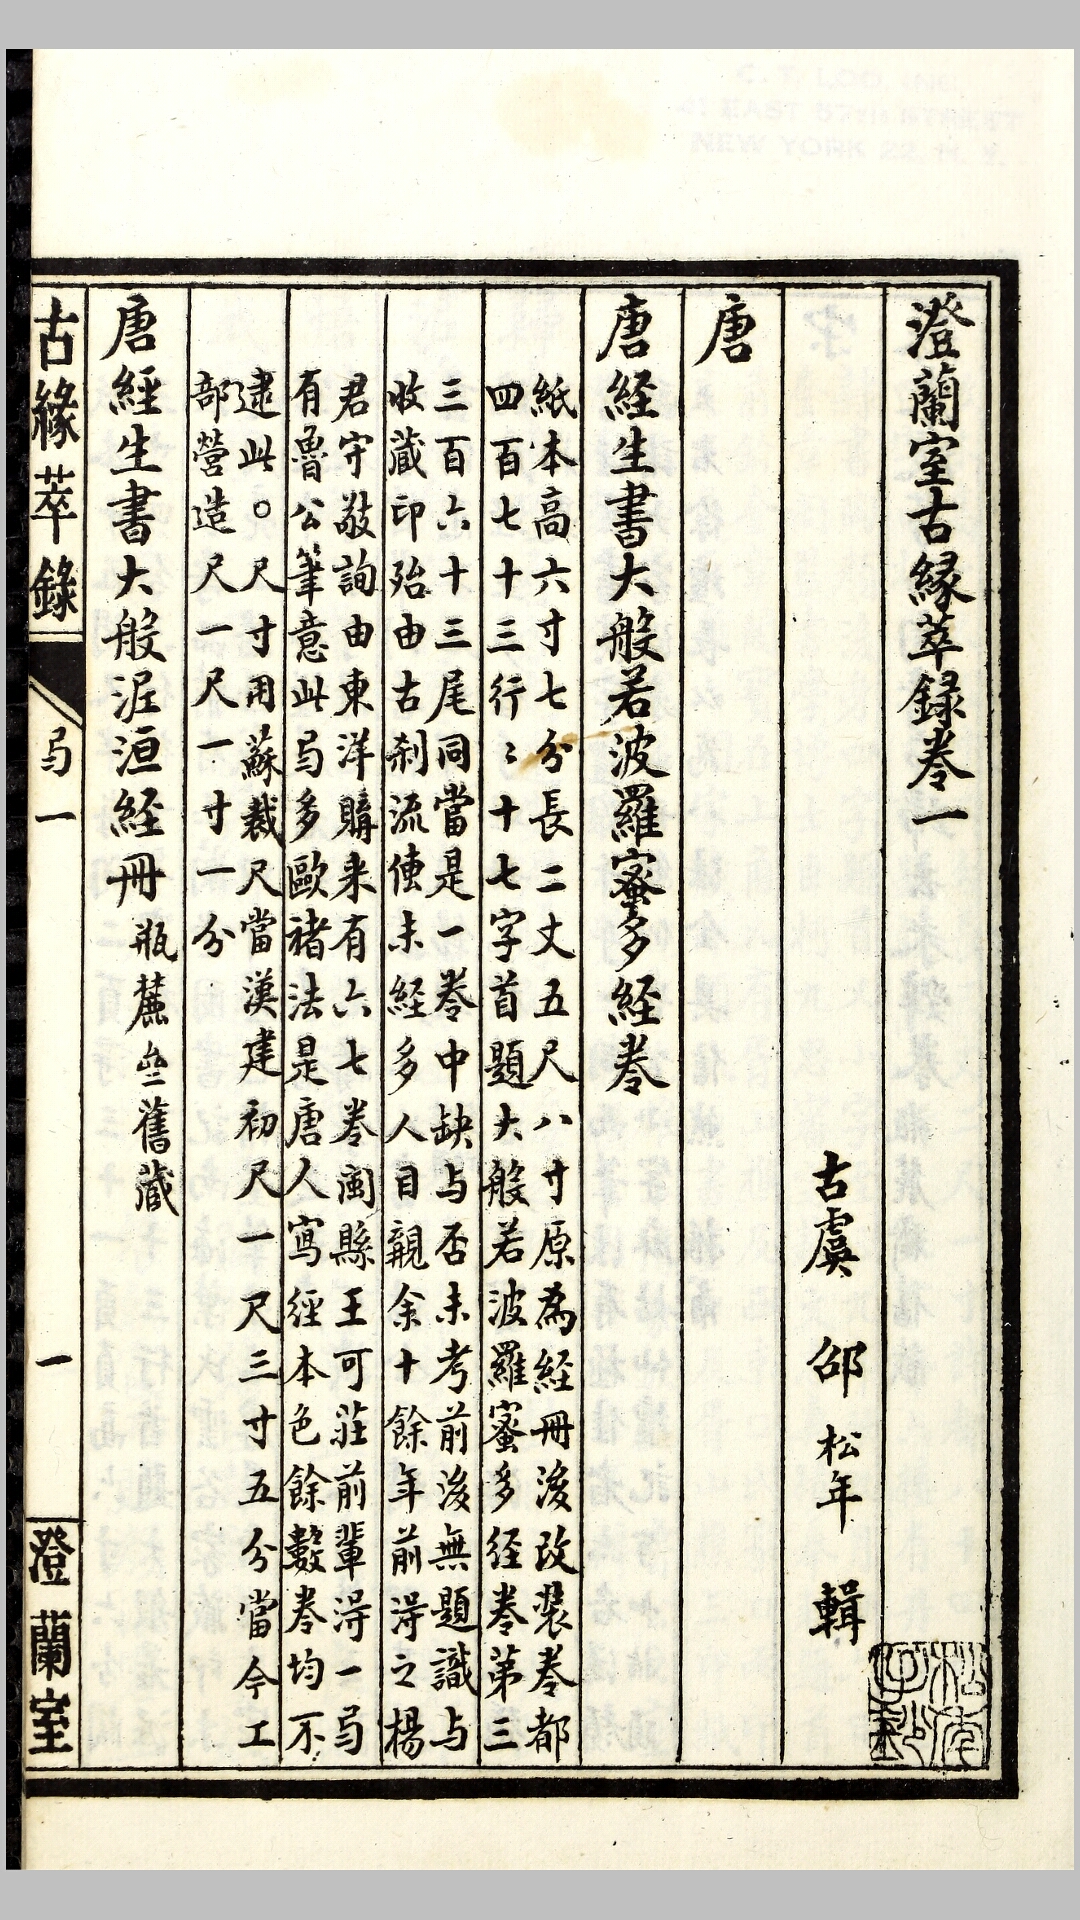 澄蘭室古緣萃錄卷一
古虞 邵 松年 輯
唐
唐經生書大般若波羅蜜多經卷
紙本高六寸七分長二丈五尺八寸原為經冊後改裝卷都
四百七十三行〻十七字首題大般若波羅蜜多經卷第三
三百六十三尾同當是一卷中缺与否未考前後無題識与
收藏印殆由古刹流傳未經多人目覩余十餘年前得之楊
君守敬詢由東洋購来有六七卷閩縣王可莊前輩得一号
有魯公筆意此号多歐褚法是唐人寫經本色餘數卷均不
逮此○尺寸用蘇裁尺當漢建初尺一尺三寸五分當今工
部營造尺一尺一寸一分
唐經生書大般涅洹經冊 瓶麓亝舊藏
古緣萃錄
号一
一
澄蘭室